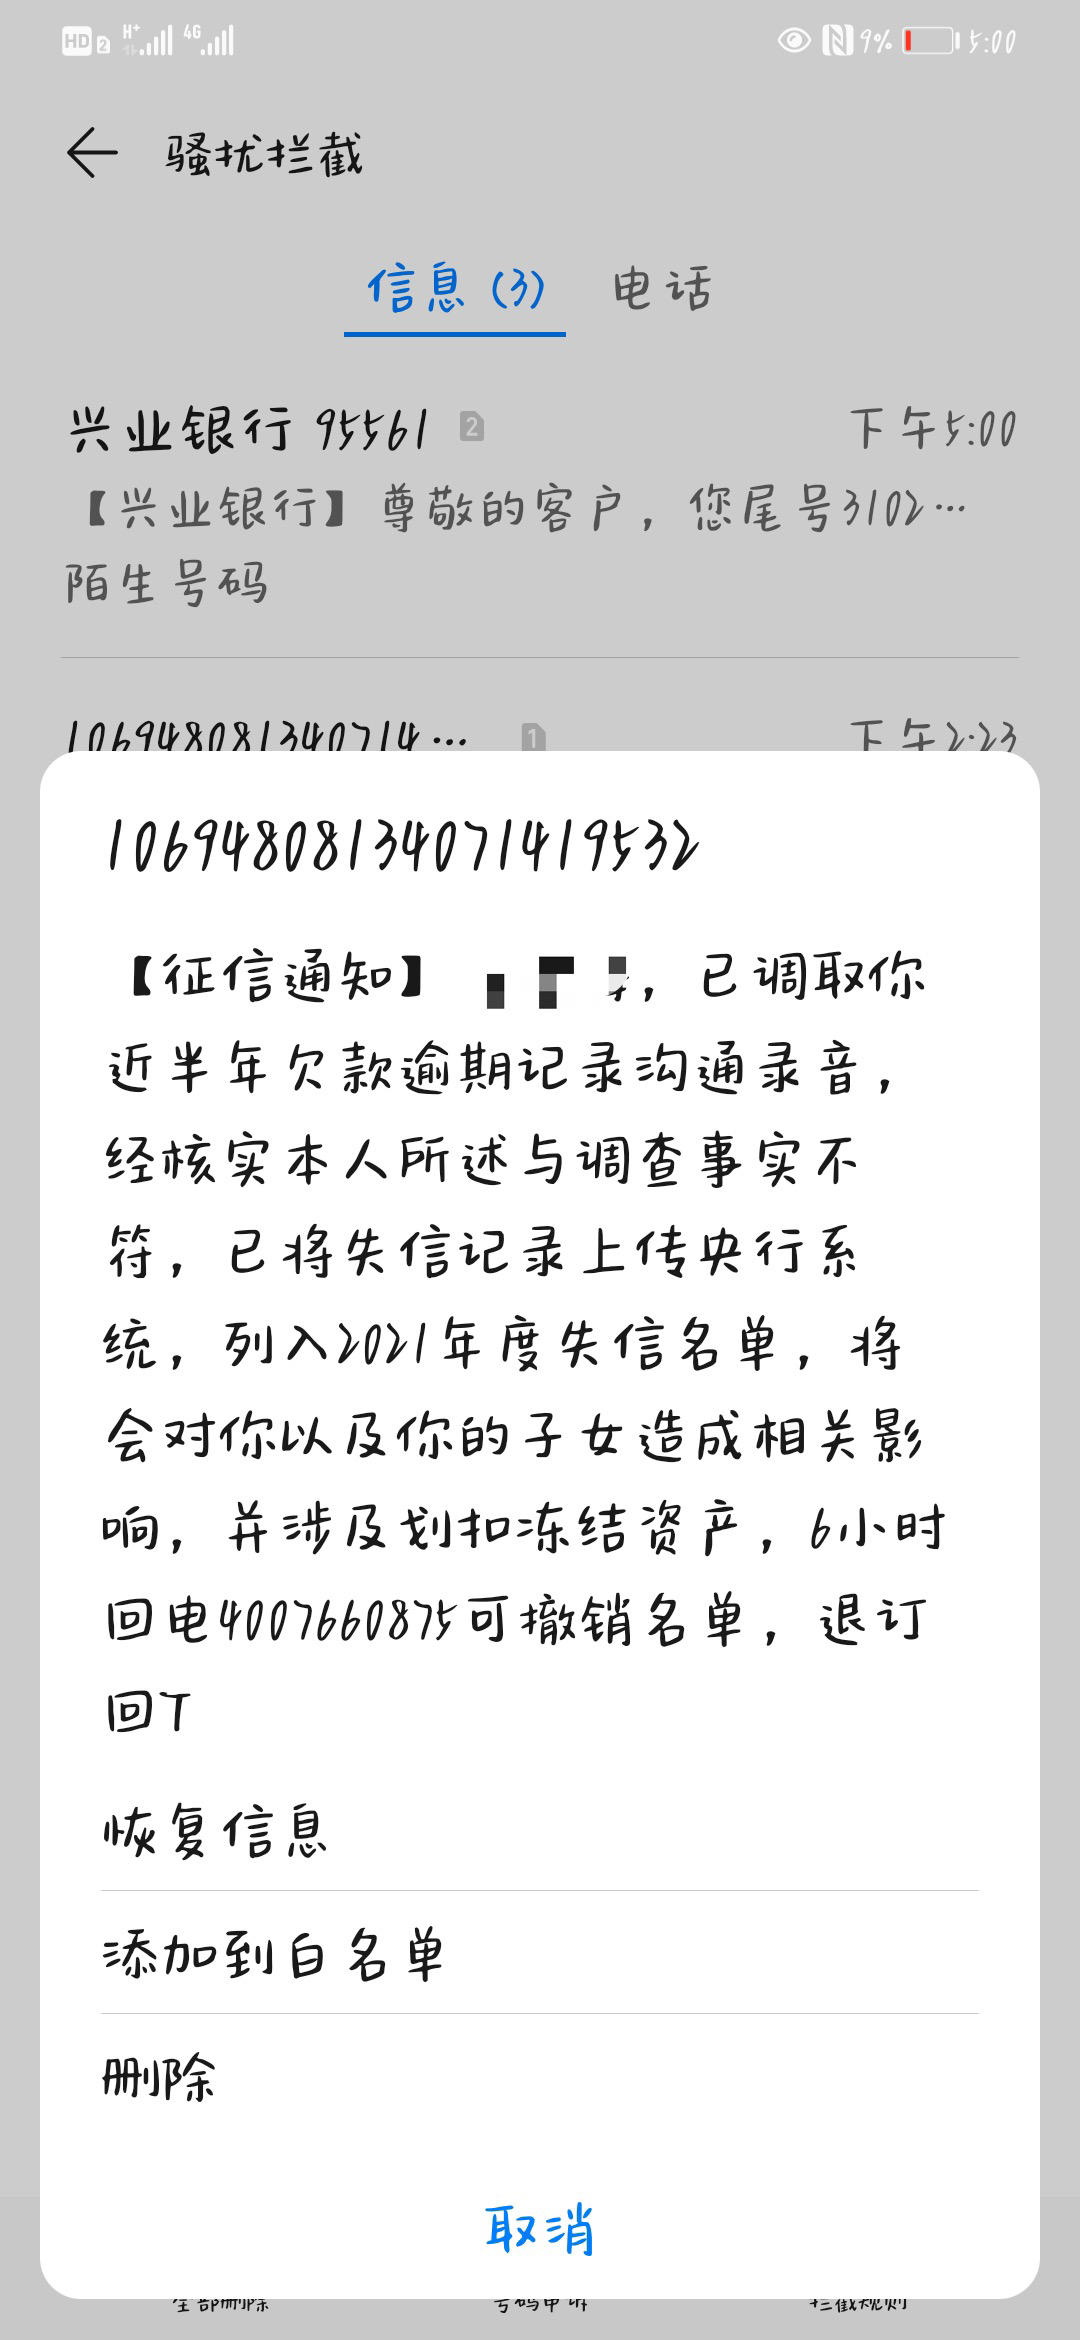 HD 2 H+ 4G 9% 5:00
骚扰拦截
信息 (3) 电话
兴业银行 95561 2 下午5:00
【兴业银行】尊敬的客户，您尾号3102…
陌生号码
106948081340714… 1 下午2:23
1069480813407141953​2
【征信通知】 ，已调取你
近半年欠款逾期记录沟通录音，
经核实本人所述与调查事实不
符，已将失信记录上传央行系
统，列入2021年度失信名单，将
会对你以及你的子女造成相关影
响，并涉及划扣冻结资产，6小时
回电4007660875可撤销名单，退订
回T
恢复信息
添加到白名单
删除
取消
全部删除 号码申诉 拦截规则